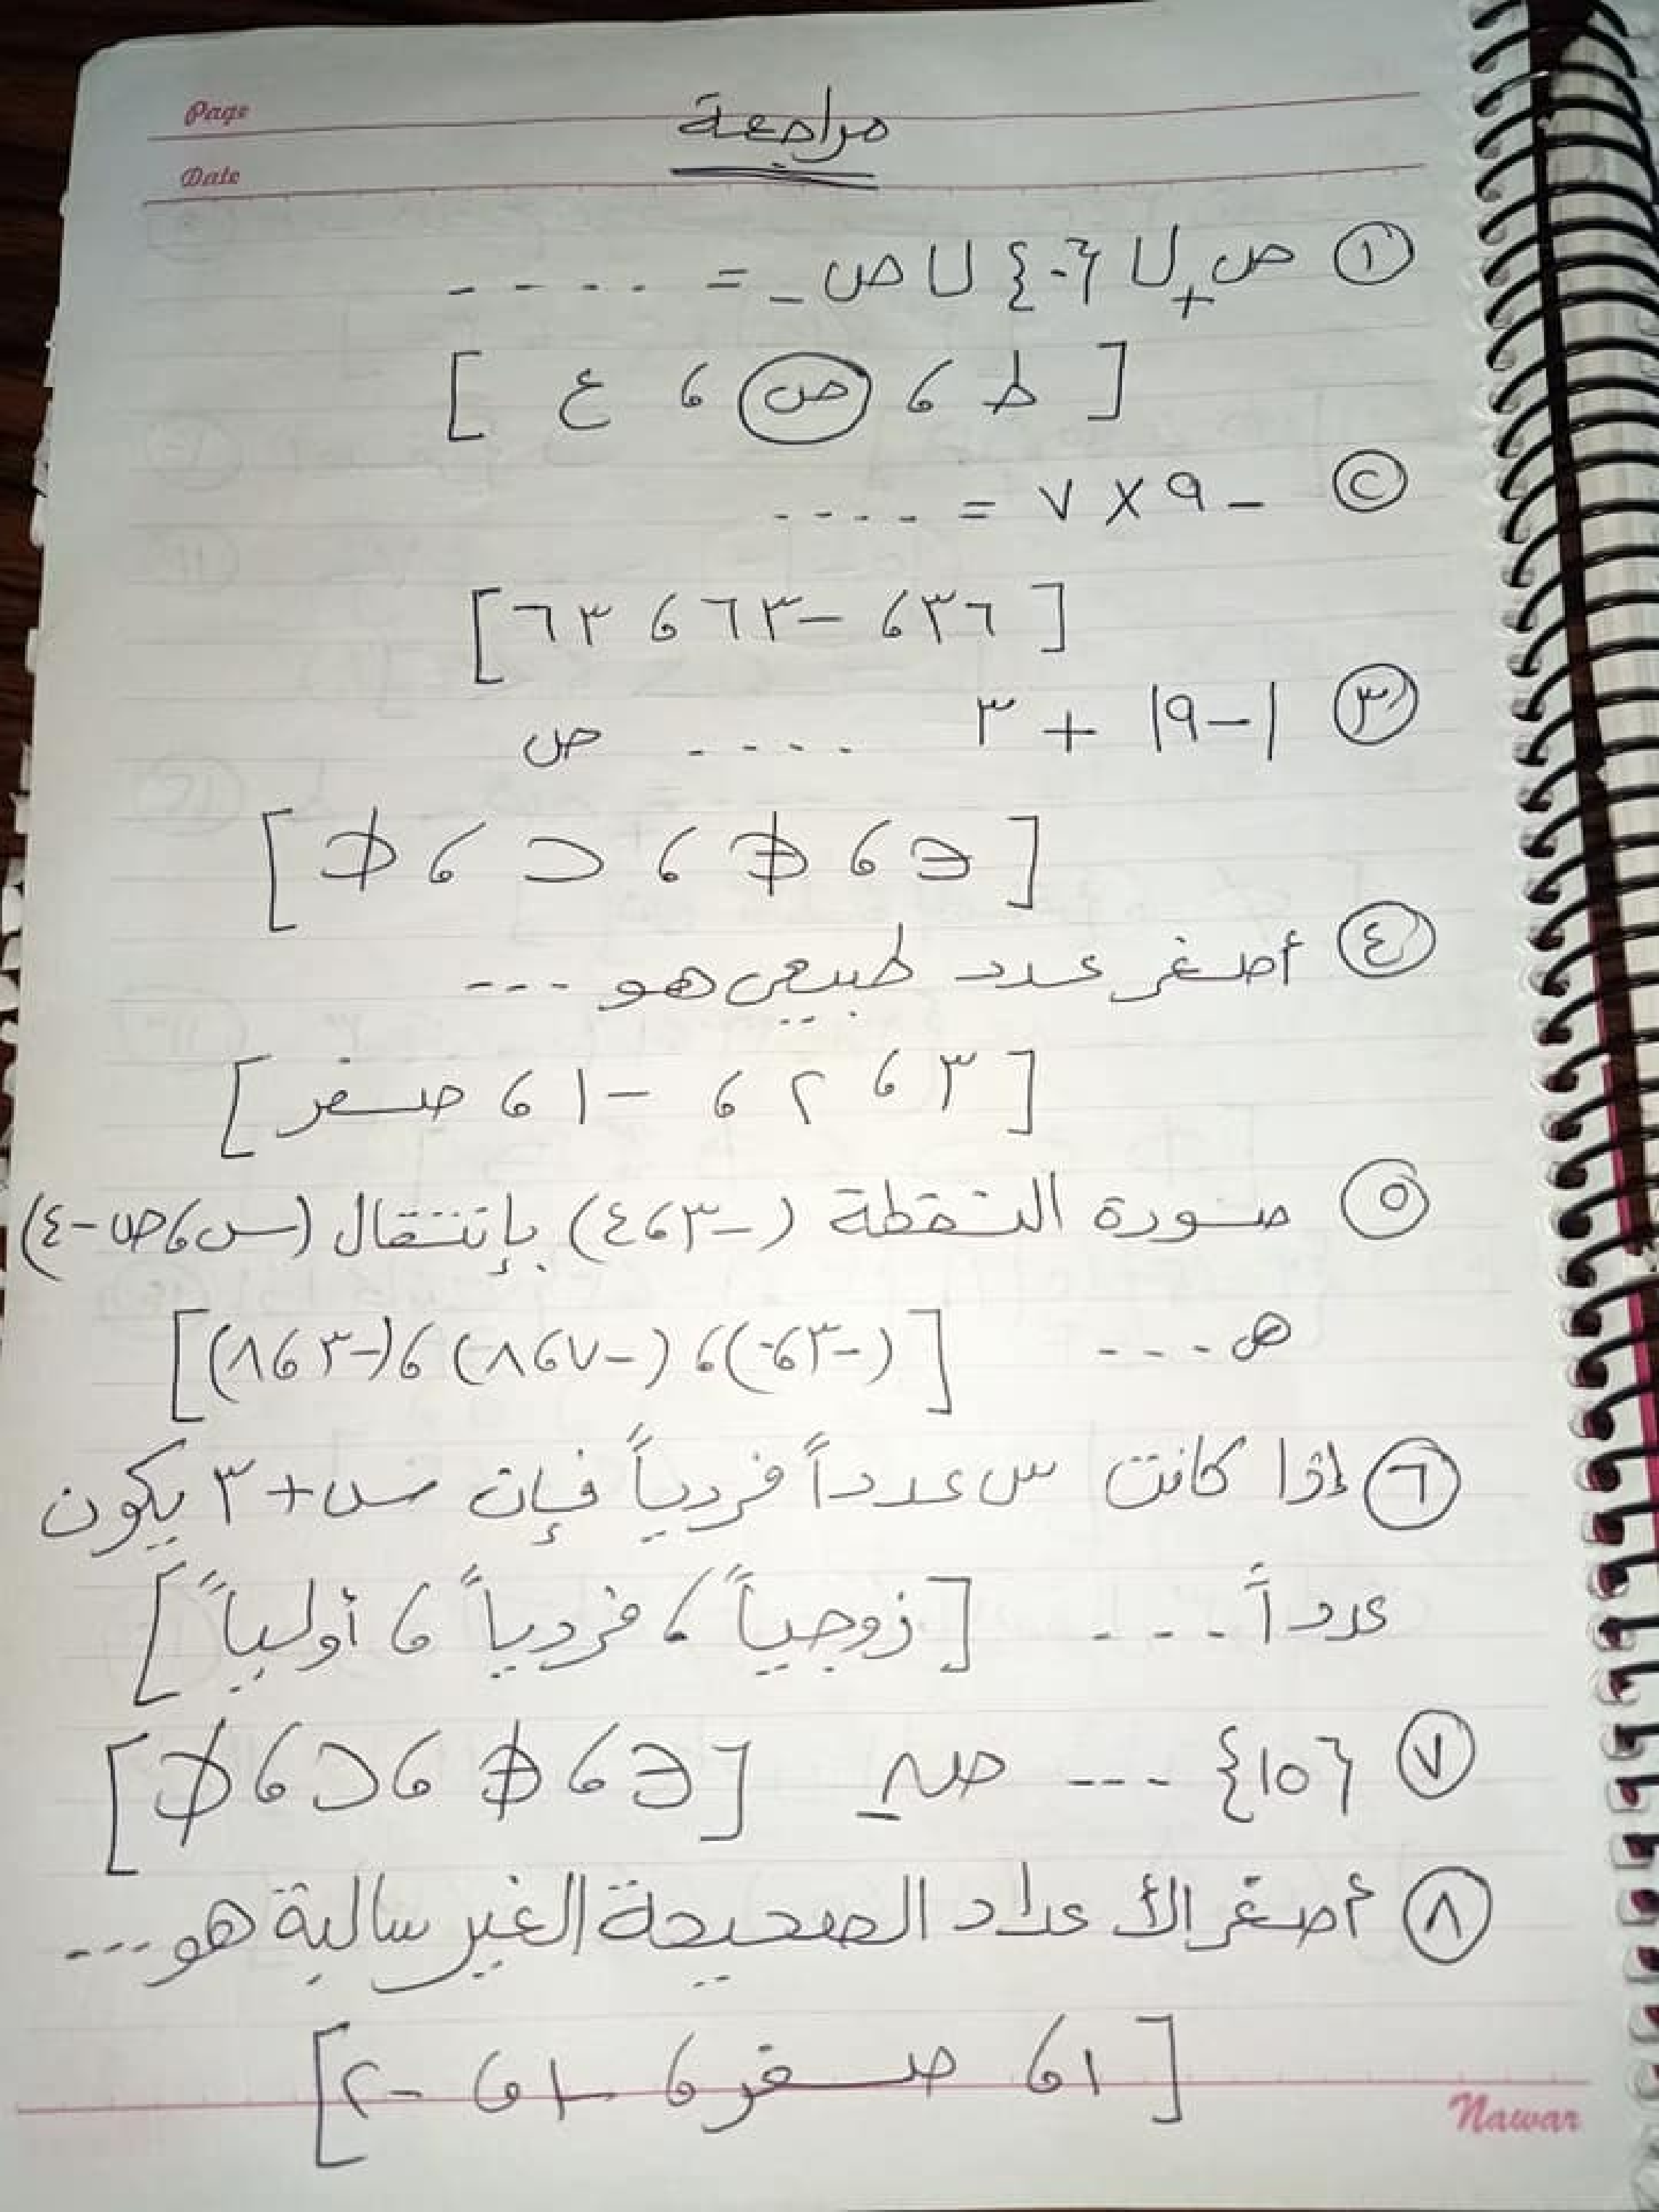 Page
Date
مراجعة
① ص+ ∪ {٠} ∪ ص- = ....
[ ط ، ص ، ع ]
② -٩ × ٧ = ....
[ ٣٦ ، -٦٣ ، ٦٣ ]
③ |-٩| + ٣ .... ص
[ ∈ ، ∉ ، ⊂ ، ⊄ ]
④ أصغر عدد طبيعى هو ...
[ ٣ ، ٢ ، -١ ، صفر ]
⑤ صورة النقطة (-٣ ، ٤) بإنتقال (س ، ص-٤)
ھ .... [ (-٣ ، ٠) ، (-٧ ، ٨) ، (-٣ ، ٨) ]
⑥ إذا كانت س عدداً فردياً فإن س+٣ يكون
عدداً .... [ زوجياً ، فردياً ، أولياً ]
⑦ {١٥} ... ص- [ ∈ ، ∉ ، ⊂ ، ⊄ ]
⑧ أصغر الأعداد الصحيحة الغير سالبة هو ...
[ ١ ، صفر ، -١ ، -٢ ]
Nawar